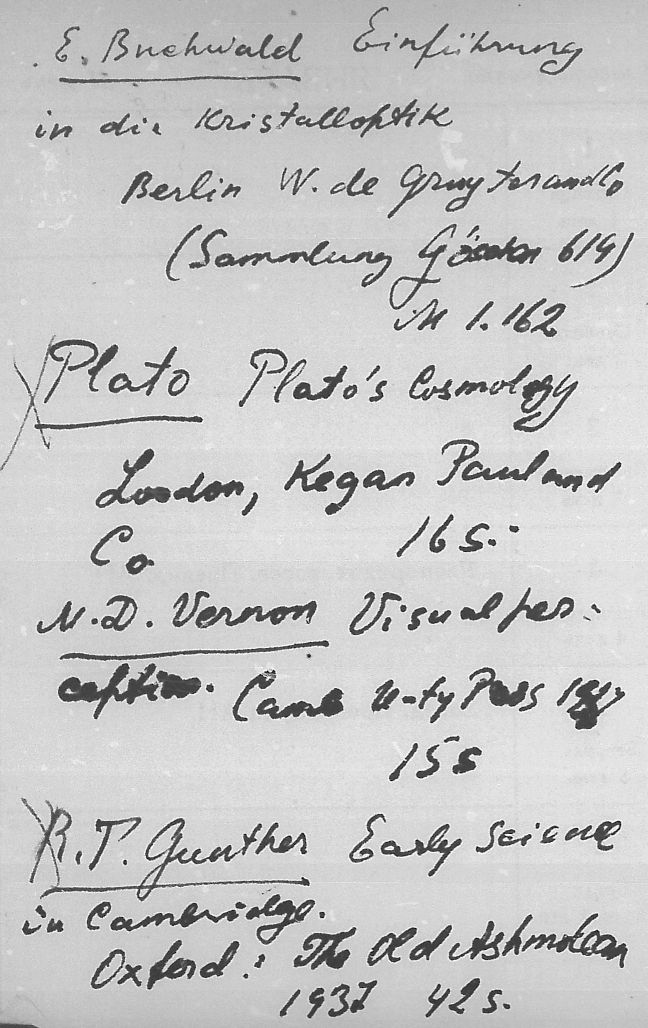 E. Buchwald Einführung
in die Kristalloptik
Berlin W. de Gruyter and Co
(Sammlung Göschen 619)
M 1.162
Plato Plato's Cosmology
London, Kegan Paul and
Co 16 s.
M.D. Vernon Visual per-
ception. Camb U-ty Press
15 s
R.T. Gunther Early Science
in Cambridge.
Oxford: The Old Ashmolean
1937 42 s.